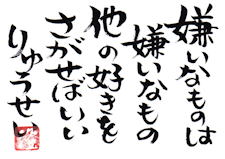 嫌いなものは
嫌いなもの
他の好きを
さがせばいい
りゅうせい